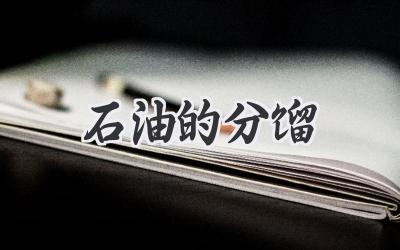 石油的分馏